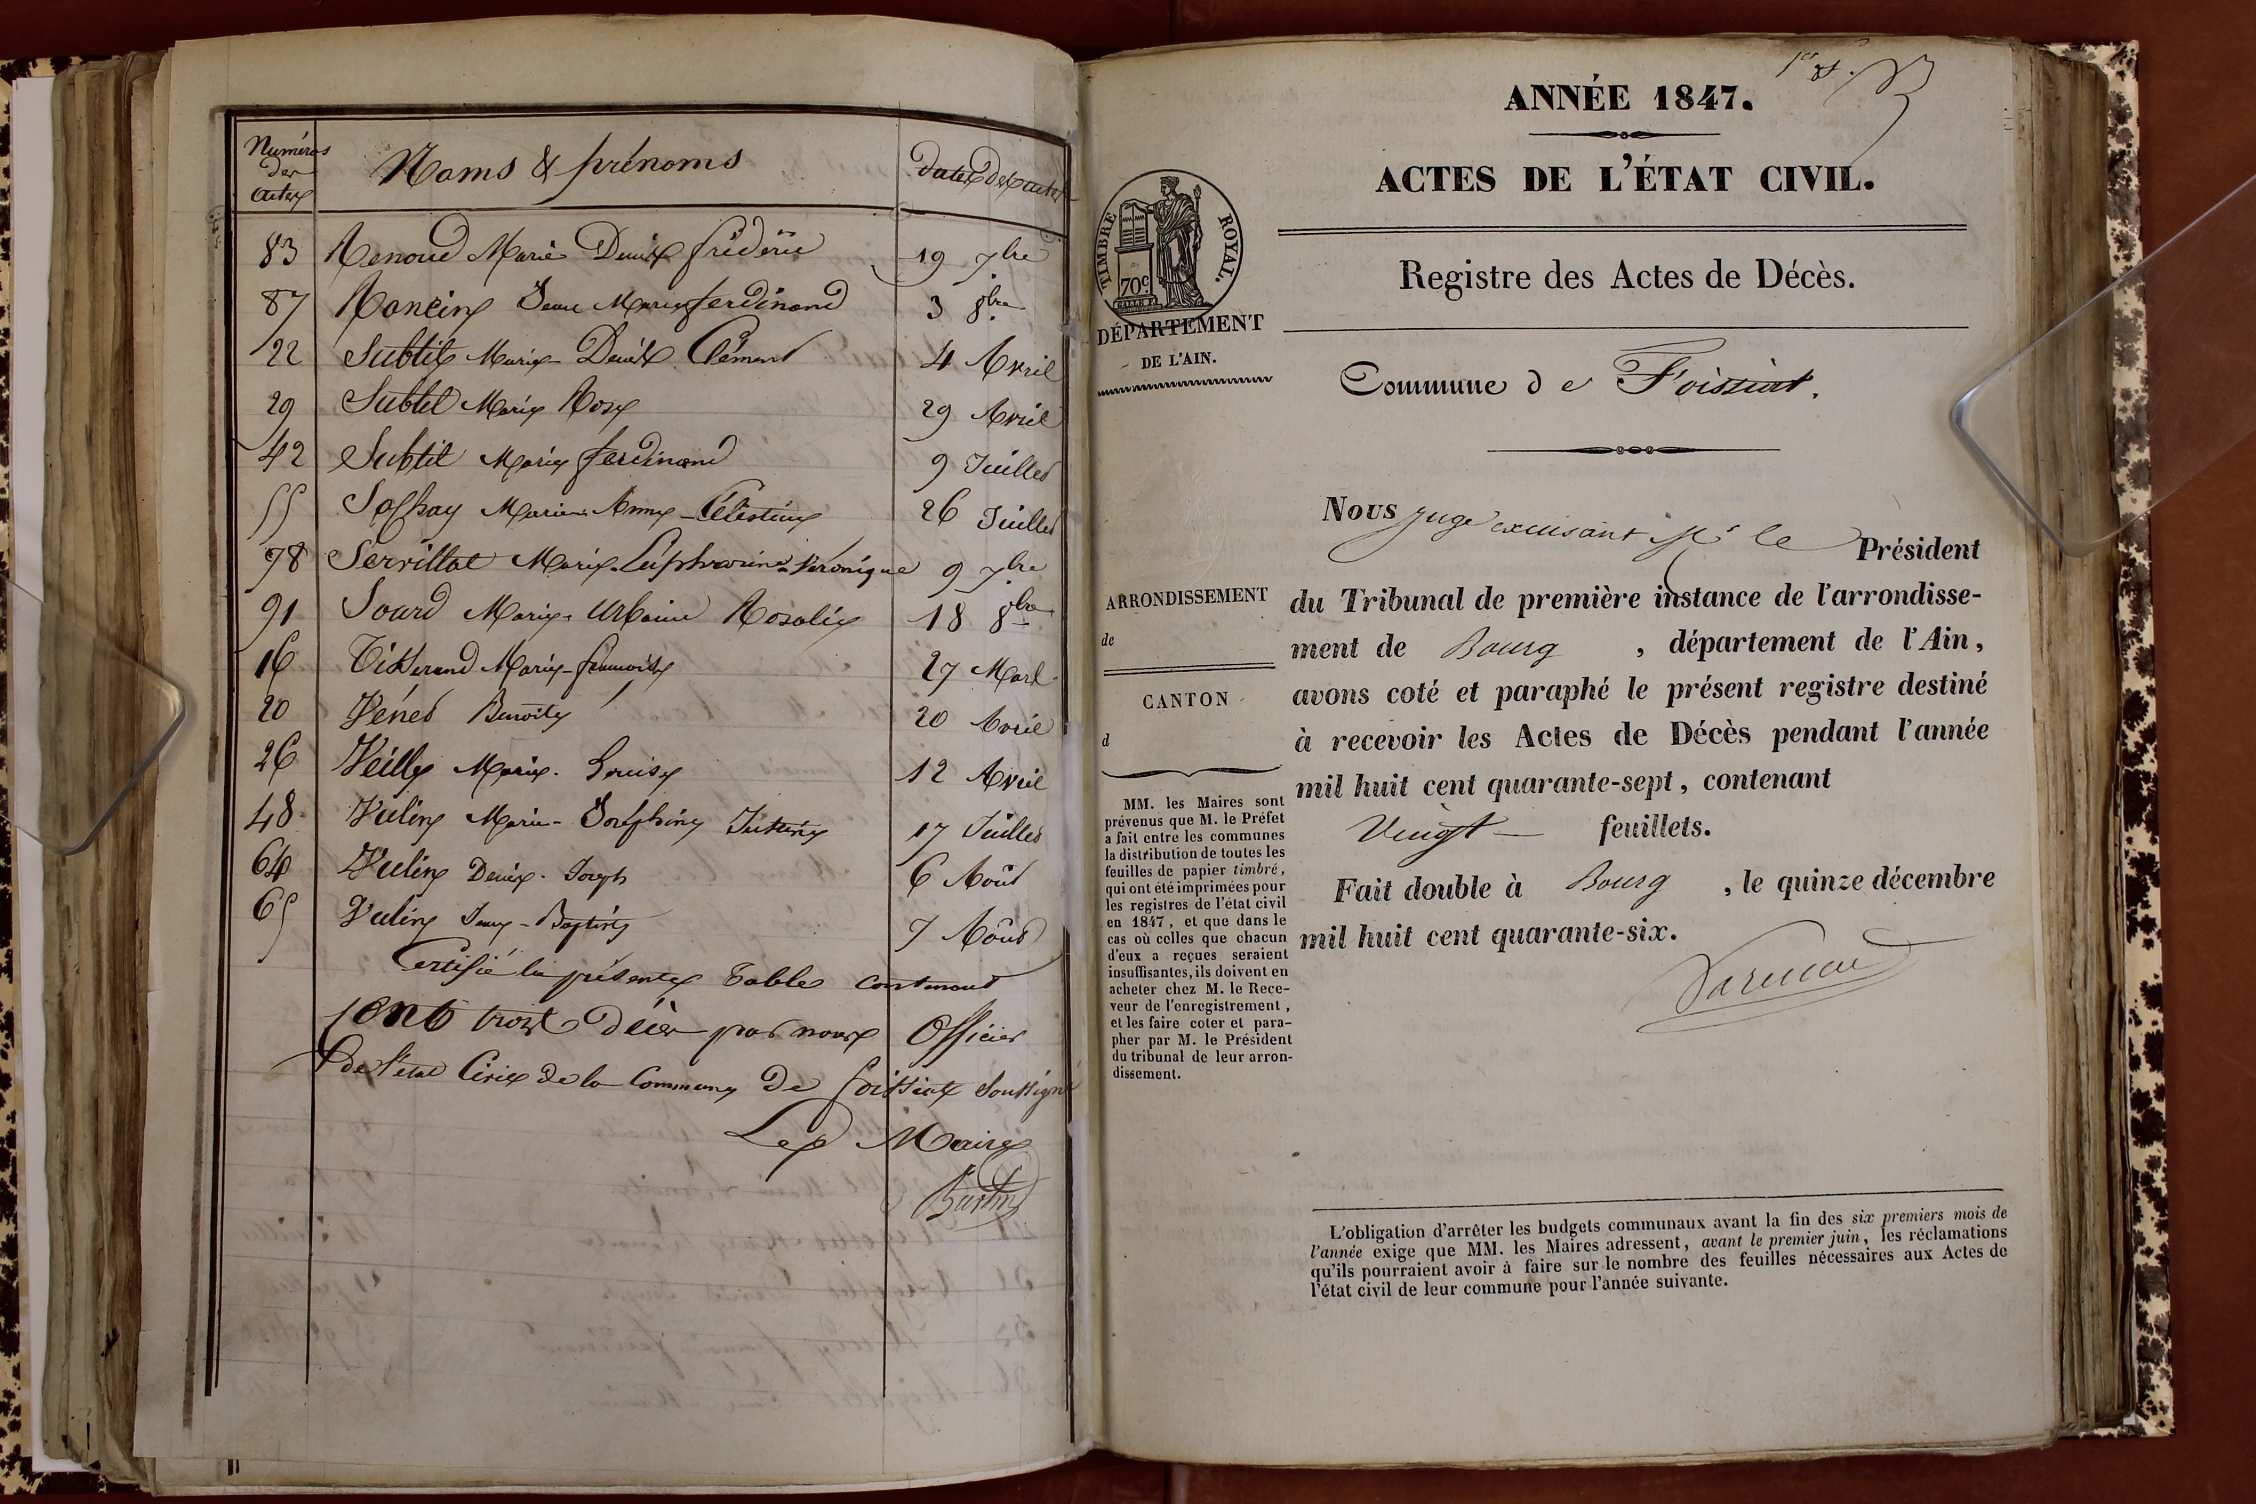 Numéros
des
actes
Noms & prénoms
dates des actes
83 Renoud Marie Denis frédéric 19 7bre
87 Roncin Jean Marie ferdinand 3 8bre
22 Subtil Marie Denis Clément 4 Avril
29 Subtil Marie Rose 29 Avril
42 Subtil Marie ferdinand 9 Juillet
55 Marie Anne Célestine 26 Juillet
78 Servillat Marie Véronique 9 7bre
91 Sourd Marie Urbaine Rosalie 18 8bre
16 Tisserand Marie françoise 27 Mars
20 Benoite 20 Avril
26 Veille Marie Louise 12 Avril
48 Vulin Marie Joséphine Justine 17 Juillet
64 Vulin Denis Joseph 6 Août
65 Vulin Jean Baptiste 7 Août
Certifié la présente Table contenant
cent trois décès par nous Officier
de l'état Civil de la Commune De foissiat Soussigné
Le Maire
ANNÉE 1847.
ACTES DE L'ÉTAT CIVIL.
TIMBRE ROYAL.
70c.
Registre des Actes de Décès.
DÉPARTEMENT
DE L'AIN.
Commune de Foissiat.
Nous juge Mr le Président
ARRONDISSEMENT
de
du Tribunal de première instance de l'arrondisse-
ment de Bourg, département de l'Ain,
CANTON
d
avons coté et paraphé le présent registre destiné
à recevoir les Actes de Décès pendant l'année
mil huit cent quarante-sept, contenant
Vingt feuillets.
Fait double à Bourg, le quinze décembre
mil huit cent quarante-six.
MM. les Maires sont
prévenus que M. le Préfet
a fait entre les communes
la distribution de toutes les
feuilles de papier timbré,
qui ont été imprimées pour
les registres de l'état civil
en 1847, et que dans le
cas où celles que chacun
d'eux a reçues seraient
insuffisantes, ils doivent en
acheter chez M. le Rece-
veur de l'enregistrement,
et les faire coter et para-
pher par M. le Président
du tribunal de leur arron-
dissement.
L'obligation d'arrêter les budgets communaux avant la fin des six premiers mois de
l'année exige que MM. les Maires adressent, avant le premier juin, les réclamations
qu'ils pourraient avoir à faire sur le nombre des feuilles nécessaires aux Actes de
l'état civil de leur commune pour l'année suivante.